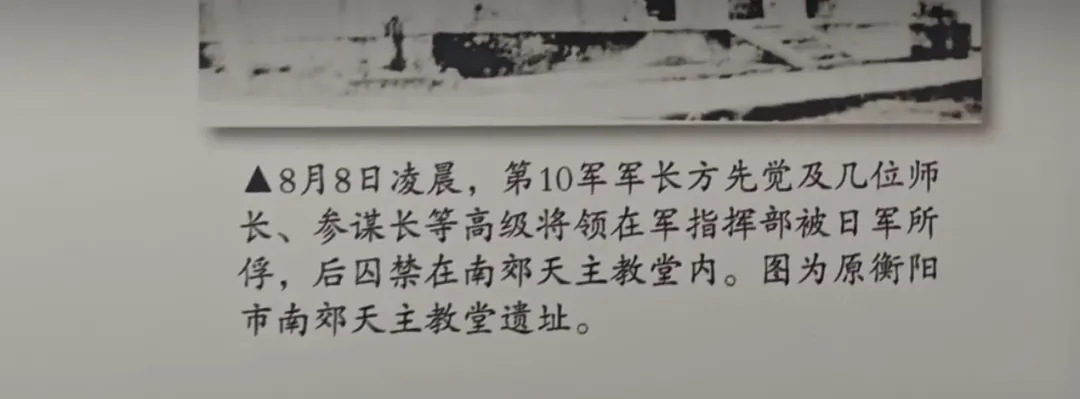 ▲8月8日凌晨，第10军军长方先觉及几位师
长、参谋长等高级将领在军指挥部被日军所
俘，后囚禁在南郊天主教堂内。图为原衡阳
市南郊天主教堂遗址。